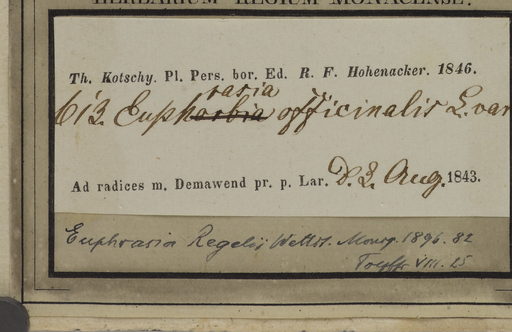 HERBARIUM REGIUM MONACENSE.
Th. Kotschy. Pl. Pers. bor. Ed. R. F. Hohenacker. 1846.
rasia
613. Euphorbia officinalis L. var
Ad radices m. Demawend pr. p. Lar. D. 2. Aug. 1843.
Euphrasia Regelii Wettst. Monogr. 1896. 82
VIII. 25